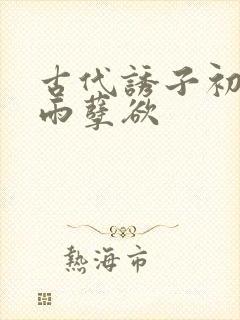 古代誘子初
雨孽欲
熱海市